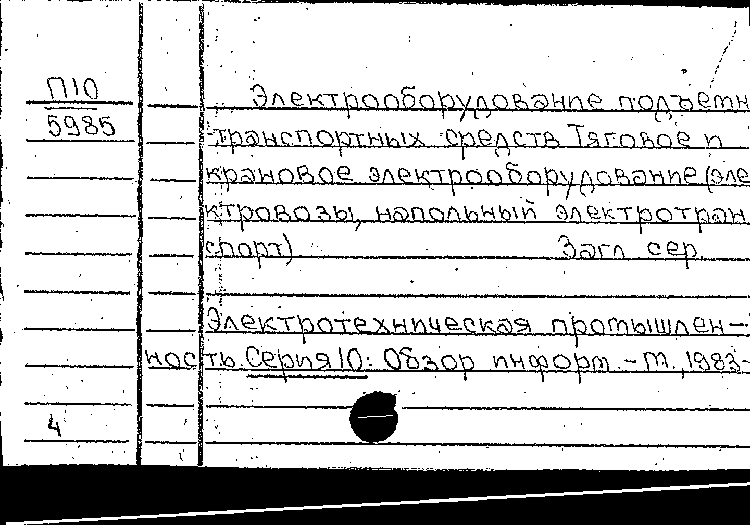 П10
5985
Электрооборудование подъемн
транспортных средств Тяговое и
крановое электрооборудование (эле
ктровозы, напольный электротран
спорт) Загл сер.
Электротехническая промышлен-
ность. Серия 10: Обзор информ. - М., 1983-
4